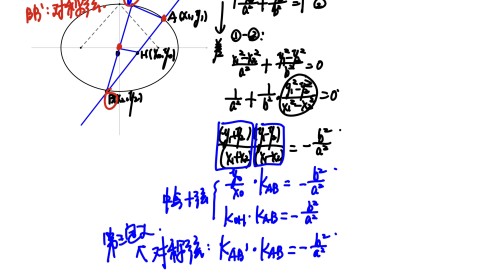 BB':对称弦.
A(x₁,y₁)
H(x₀,y₀)
B(x₂,y₂)
差 ①-②:
(x₁²-x₂²)/a² + (y₁²-y₂²)/b² = 0
1/a² + 1/b² · (y₁²-y₂²)/(x₁²-x₂²) = 0
(y₁+y₂)/(x₁+x₂) (y₁-y₂)/(x₁-x₂) = -b²/a²
中点+弦 { y₀/x₀ · K_AB = -b²/a²
K_OH · K_AB = -b²/a²
第三定义
对称弦: K_AB' · K_AB = -b²/a²